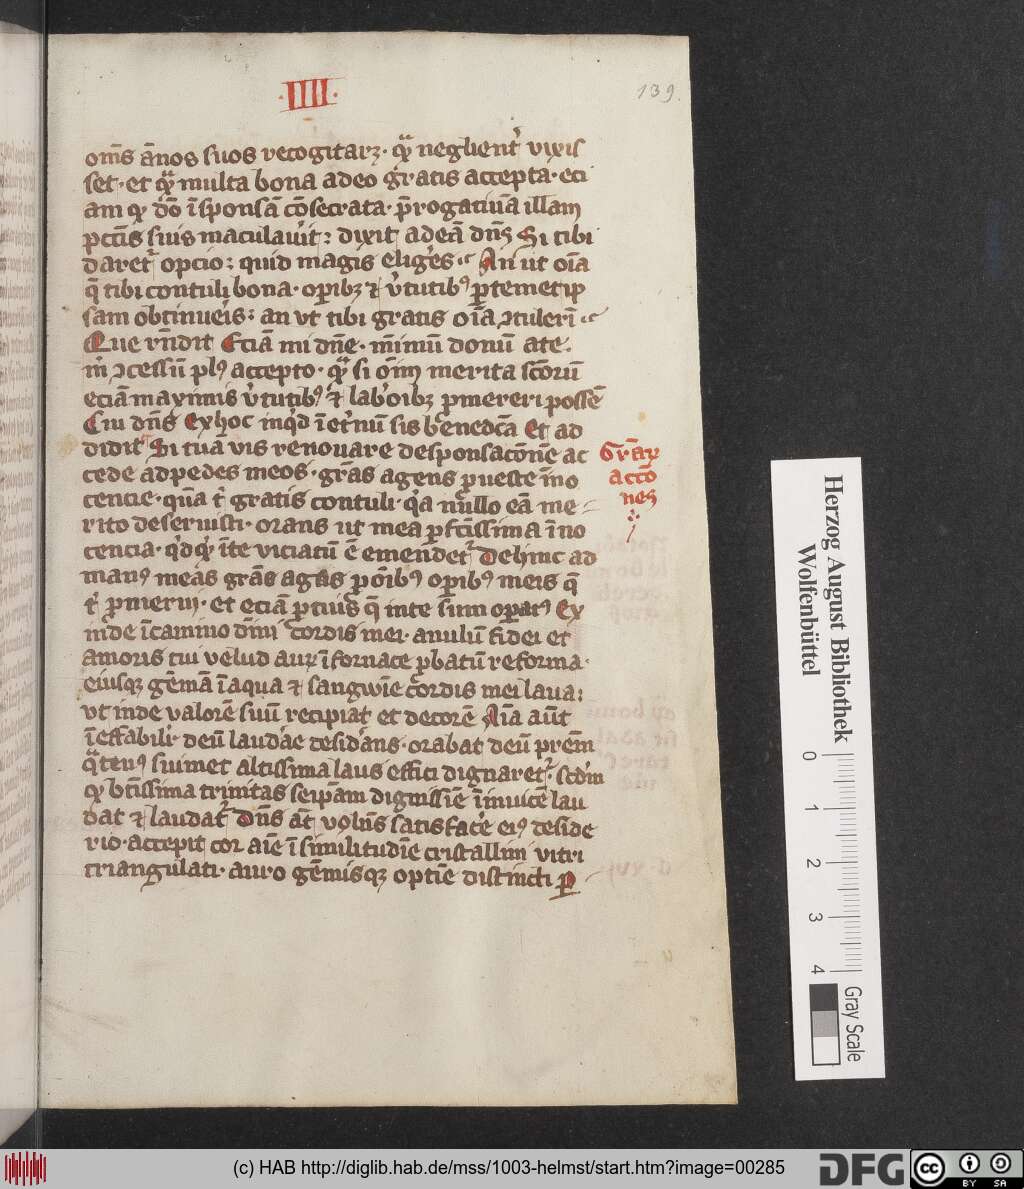 ·IIII·
139.
om̄s ān̄os suos recogitarꝫ · qꝛ neglient᷑ vixis
set · et qꝛ multa bona adeo gratis accepta · eci
am qꝛ dō ī sponsā cōsecrata · p̄rogatiuā illam
pctīs suis maculauit : dixit ad eā dn̄s Si tibi
daret᷑ opcio : quid magis eligēs An ut oīa
q̄ tibi contuli bona · opibꝫ ⁊ v̓tutibꝰ ꝑ temetip
sam obtinueis : an vt tibi gratis oīa ꝯtulerī
Que rn̄dit Eciā mi dn̄e · mīmū donū a te
m̓ ꝯcessū plꝰ accepto · qꝛ si oīm merita scōrū
eciā maximis v̓tutibꝰ ⁊ laboibꝫ ꝓmereri possē
Cui dn̄s Ex hoc inqͥd ī et̓nū sis bn̄edcā Et ad
didit Si tuā vis renouare desponsacōn̄e ac
cede ad pedes meos · grās agens ꝓ ueste īno
cencie · quā t̓ gratis contuli · qͥa nullo eā me
rito deseruisti · orans ut mea ꝑfctīssima īno
cencia · qͥdqͥ ī te viciatū ē emendet᷑ Dehinc ad
manꝰ meas grās agās ꝓ oībꝰ opibꝰ meis q̄
t̓ ꝓmerui · et eciā ꝓ cius q̄ in te sum opatꝰ Ex
inde ī camino dīni cordis mei · anulū fidei et
amoris tui velud aurū ī fornace ꝓbatū reforma ·
eiusqꝫ gēmā ī aqua ⁊ sangwīe cordis mei laua :
vt inde valorē suū recipiat et decorē Aīa aūt
ī effabili · deū laudare desidans · orabat deū prēm
qͣtenꝰ suimet altissima laus effici dignaret᷑ · scdm
qꝛ btīssima trinitas seipam dignissīe īnuicē lau
dat ⁊ laudat᷑ Dn̄s aūt volns satisface eiꝰ deside
rio · accepit cor aīe ī similitudīe cristallini vitri
triangulati · auro gēmisqꝫ optīe distincti ꝑ
Grār
accō
nes
Herzog August Bibliothek
Wolfenbüttel
0 1 2 3 4
Gray Scale
(c) HAB http://diglib.hab.de/mss/1003-helmst/start.htm?image=00285
DFG
cc BY SA